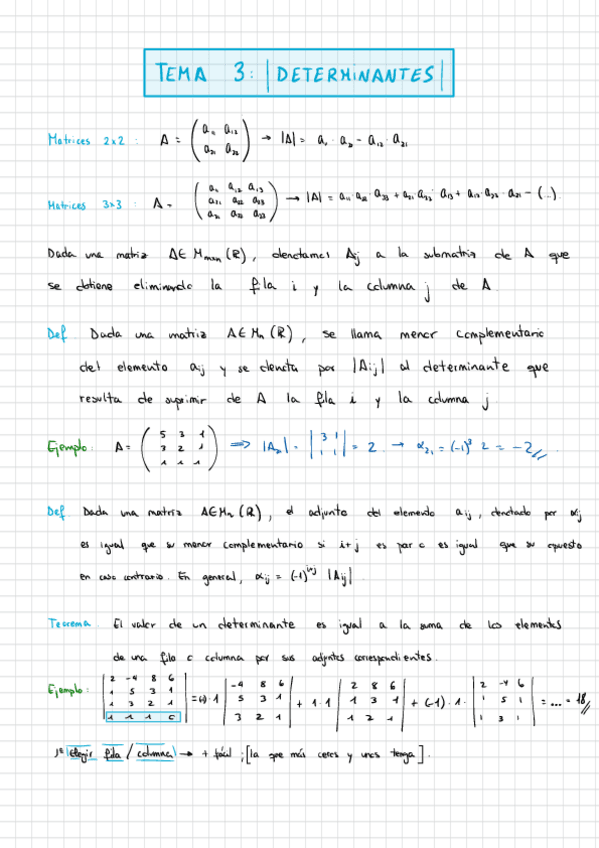 TEMA 3: |DETERMINANTES|
Matrices 2x2 : A = ( a₁₁ a₁₂ / a₂₁ a₂₂ ) → |A| = a₁ · a₂ - a₁₂ · a₂₁
Matrices 3x3 : A = ( a₁₁ a₁₂ a₁₃ / a₂₁ a₂₂ a₂₃ / a₃₁ a₃₂ a₃₃ ) → |A| = a₁₁ · a₂₂ · a₃₃ + a₂₁ a₃₂ · a₁₃ + a₁₂ · a₂₃ · a₃₁ - (...)
Dada una matriz A ∈ Mmxn (R), denotamos Aij a la submatriz de A que
se obtiene eliminando la fila i y la columna j de A
Def Dada una matriz A ∈ Mn (R), se llama menor complementario
del elemento aij y se denota por |Aij| al determinante que
resulta de suprimir de A la fila i y la columna j
Ejemplo: A = ( 5 3 1 / 3 2 1 / 1 1 1 ) ⇒ |A₂₁| = | 3 1 / 1 1 | = 2 → α₂₁ = (-1)³ 2 = -2//
Def Dada una matriz A ∈ Mn (R), el adjunto del elemento aij, denotado por αij
es igual que su menor complementario si i+j es par o es igual que su opuesto
en caso contrario. En general, αij = (-1)^i+j |Aij|
Teorema El valor de un determinante es igual a la suma de los elementos
de una fila o columna por sus adjuntos correspondientes.
Ejemplo: | 2 -4 8 6 / 1 5 3 1 / 1 3 2 1 / 1 1 1 0 | = (-1) · 1 | -4 8 6 / 5 3 1 / 3 2 1 | + 1 · 1 | 2 8 6 / 1 3 1 / 1 2 1 | + (-1) · 1 · | 2 -4 6 / 1 5 1 / 1 3 1 | = ... = 18//
elegir fila / columna → + fácil ; [la que más ceros y unos tenga].